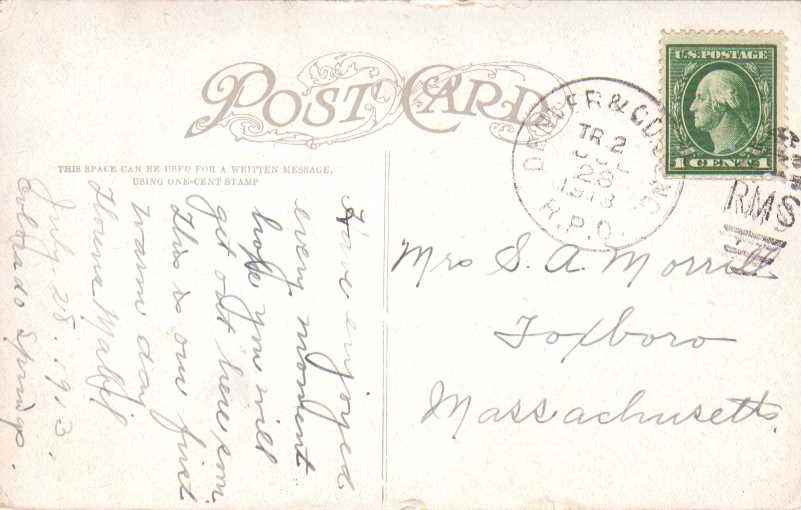 POST CARD
THIS SPACE CAN BE USED FOR A WRITTEN MESSAGE,
USING ONE-CENT STAMP
U.S. POSTAGE
1 CENT 1
TR 2
28
1913
R.P.O.
RMS
Mrs S. A. Morrill
Foxboro
Massachusetts.
Have enjoyed
every moment
hope you will
get out here som
This is our first
warm day
July 28. 1913.
Colorado Springs.